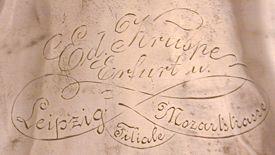 Ed. Kruspe
Erfurt u.
Leipzig Filiale Mozartstrasse